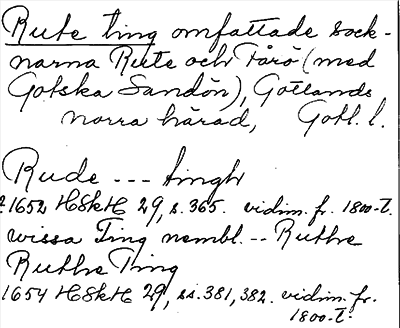 Rute ting omfattade sock-
narna Rute och Fårö (med
Gotska Sandön), Gotlands
norra härad, Gotl. l.
Rude --- tingh
1652 HSkH 29, s. 365. vidim. fr. 1800-t.
wissa Ting nembl. -- Ruthe
Ruthe Ting
1654 HSkH 29, ss. 381, 382. vidim. fr.
1800-t.